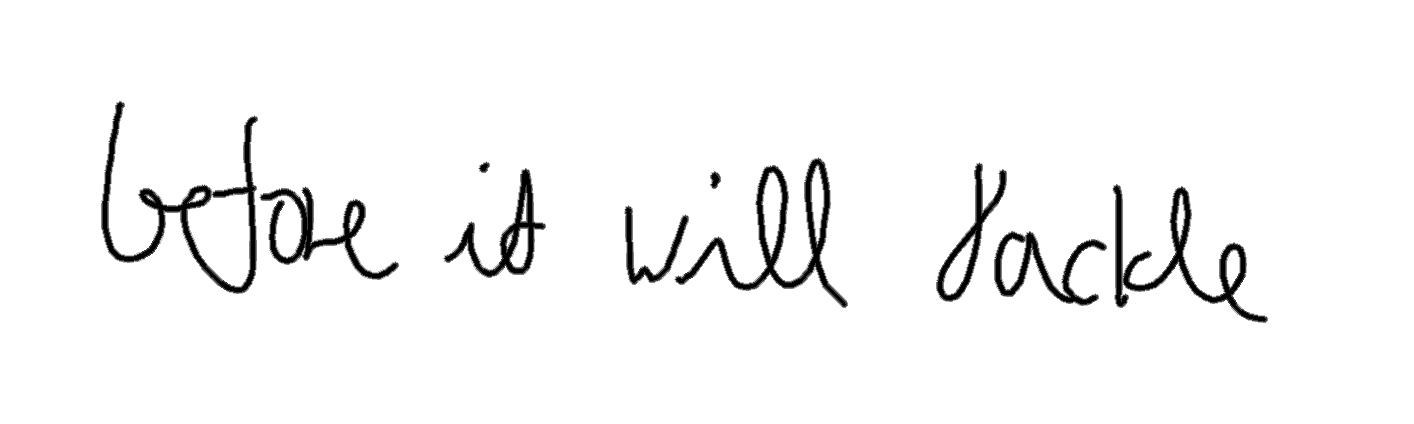 before it will tackle